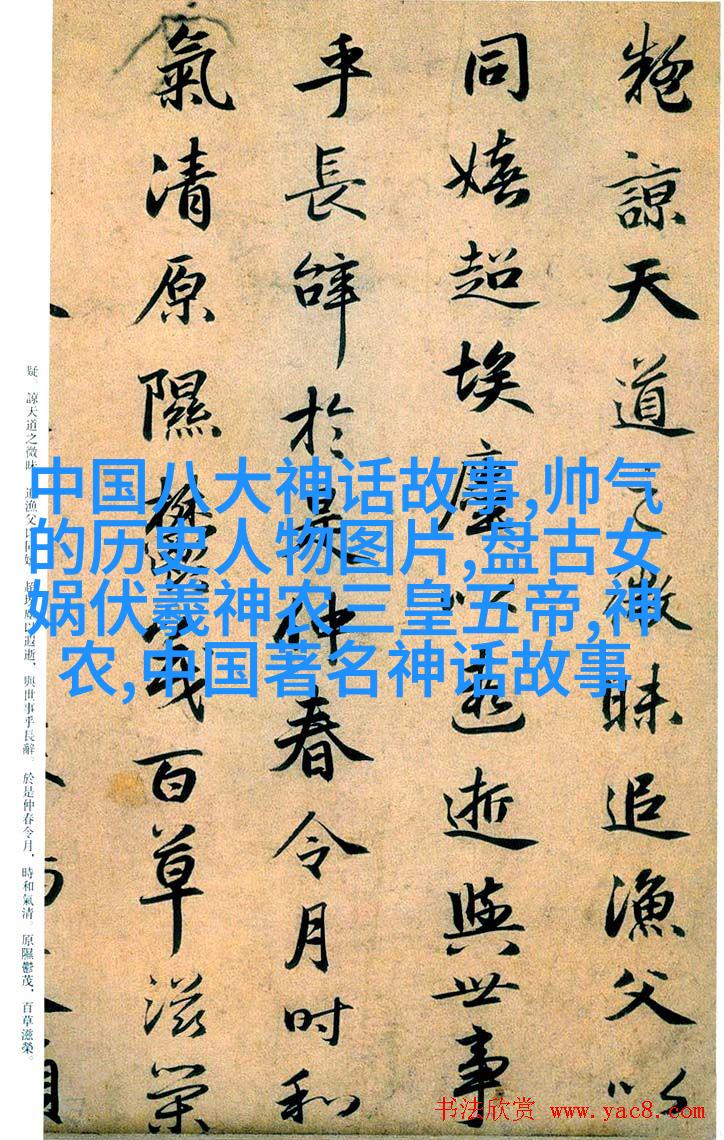 疑諒天道之微昧追漁父以
同嬉超埃塵以遐逝與世事
乎長辭於是仲春令月時和
氣清原隰鬱茂百草滋榮
疑。諒天道之微昧，追漁父以同嬉。超埃塵以遐逝，與世事乎長辭。於是仲春令月，時和氣清。原隰鬱茂，百草滋榮。
中国八大神话故事,帅气
的历史人物图片,盘古女
娲伏羲神农三皇五帝,神
农,中国著名神话故事
书法欣赏 www.yac8.com